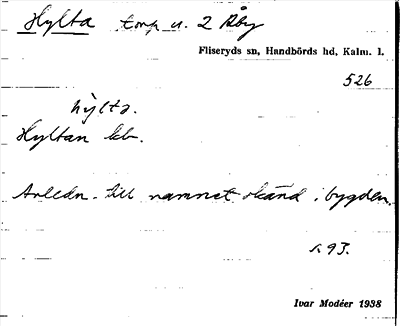 Hylta torp u. 2 Åby
Fliseryds sn, Handbörds hd, Kalm. l.
526
hỳlta.
Hyltan kb.
Anledn. till namnet okänd i bygden.
s. 93.
Ivar Modéer 1938